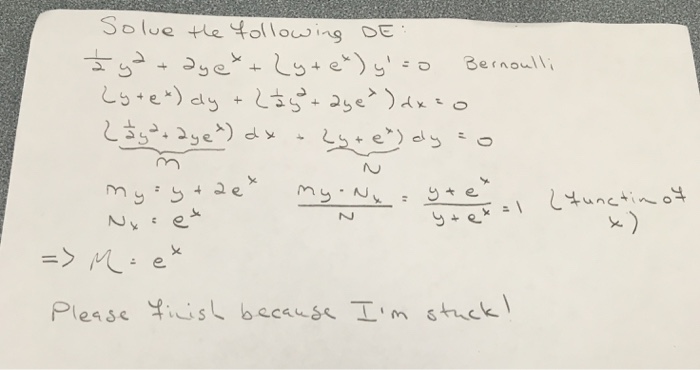 Solve the following DE:
½y² + 2ye^x + (y+e^x)y' = 0 Bernoulli
(y+e^x)dy + (½y²+2ye^x)dx = 0
(½y²+2ye^x)dx + (y+e^x)dy = 0
m N
my = y+2e^x (my - Nx)/N = (y+e^x)/(y+e^x) = 1 (functin of x)
Nx = e^x
=> M = e^x
Please finish because I'm stuck!